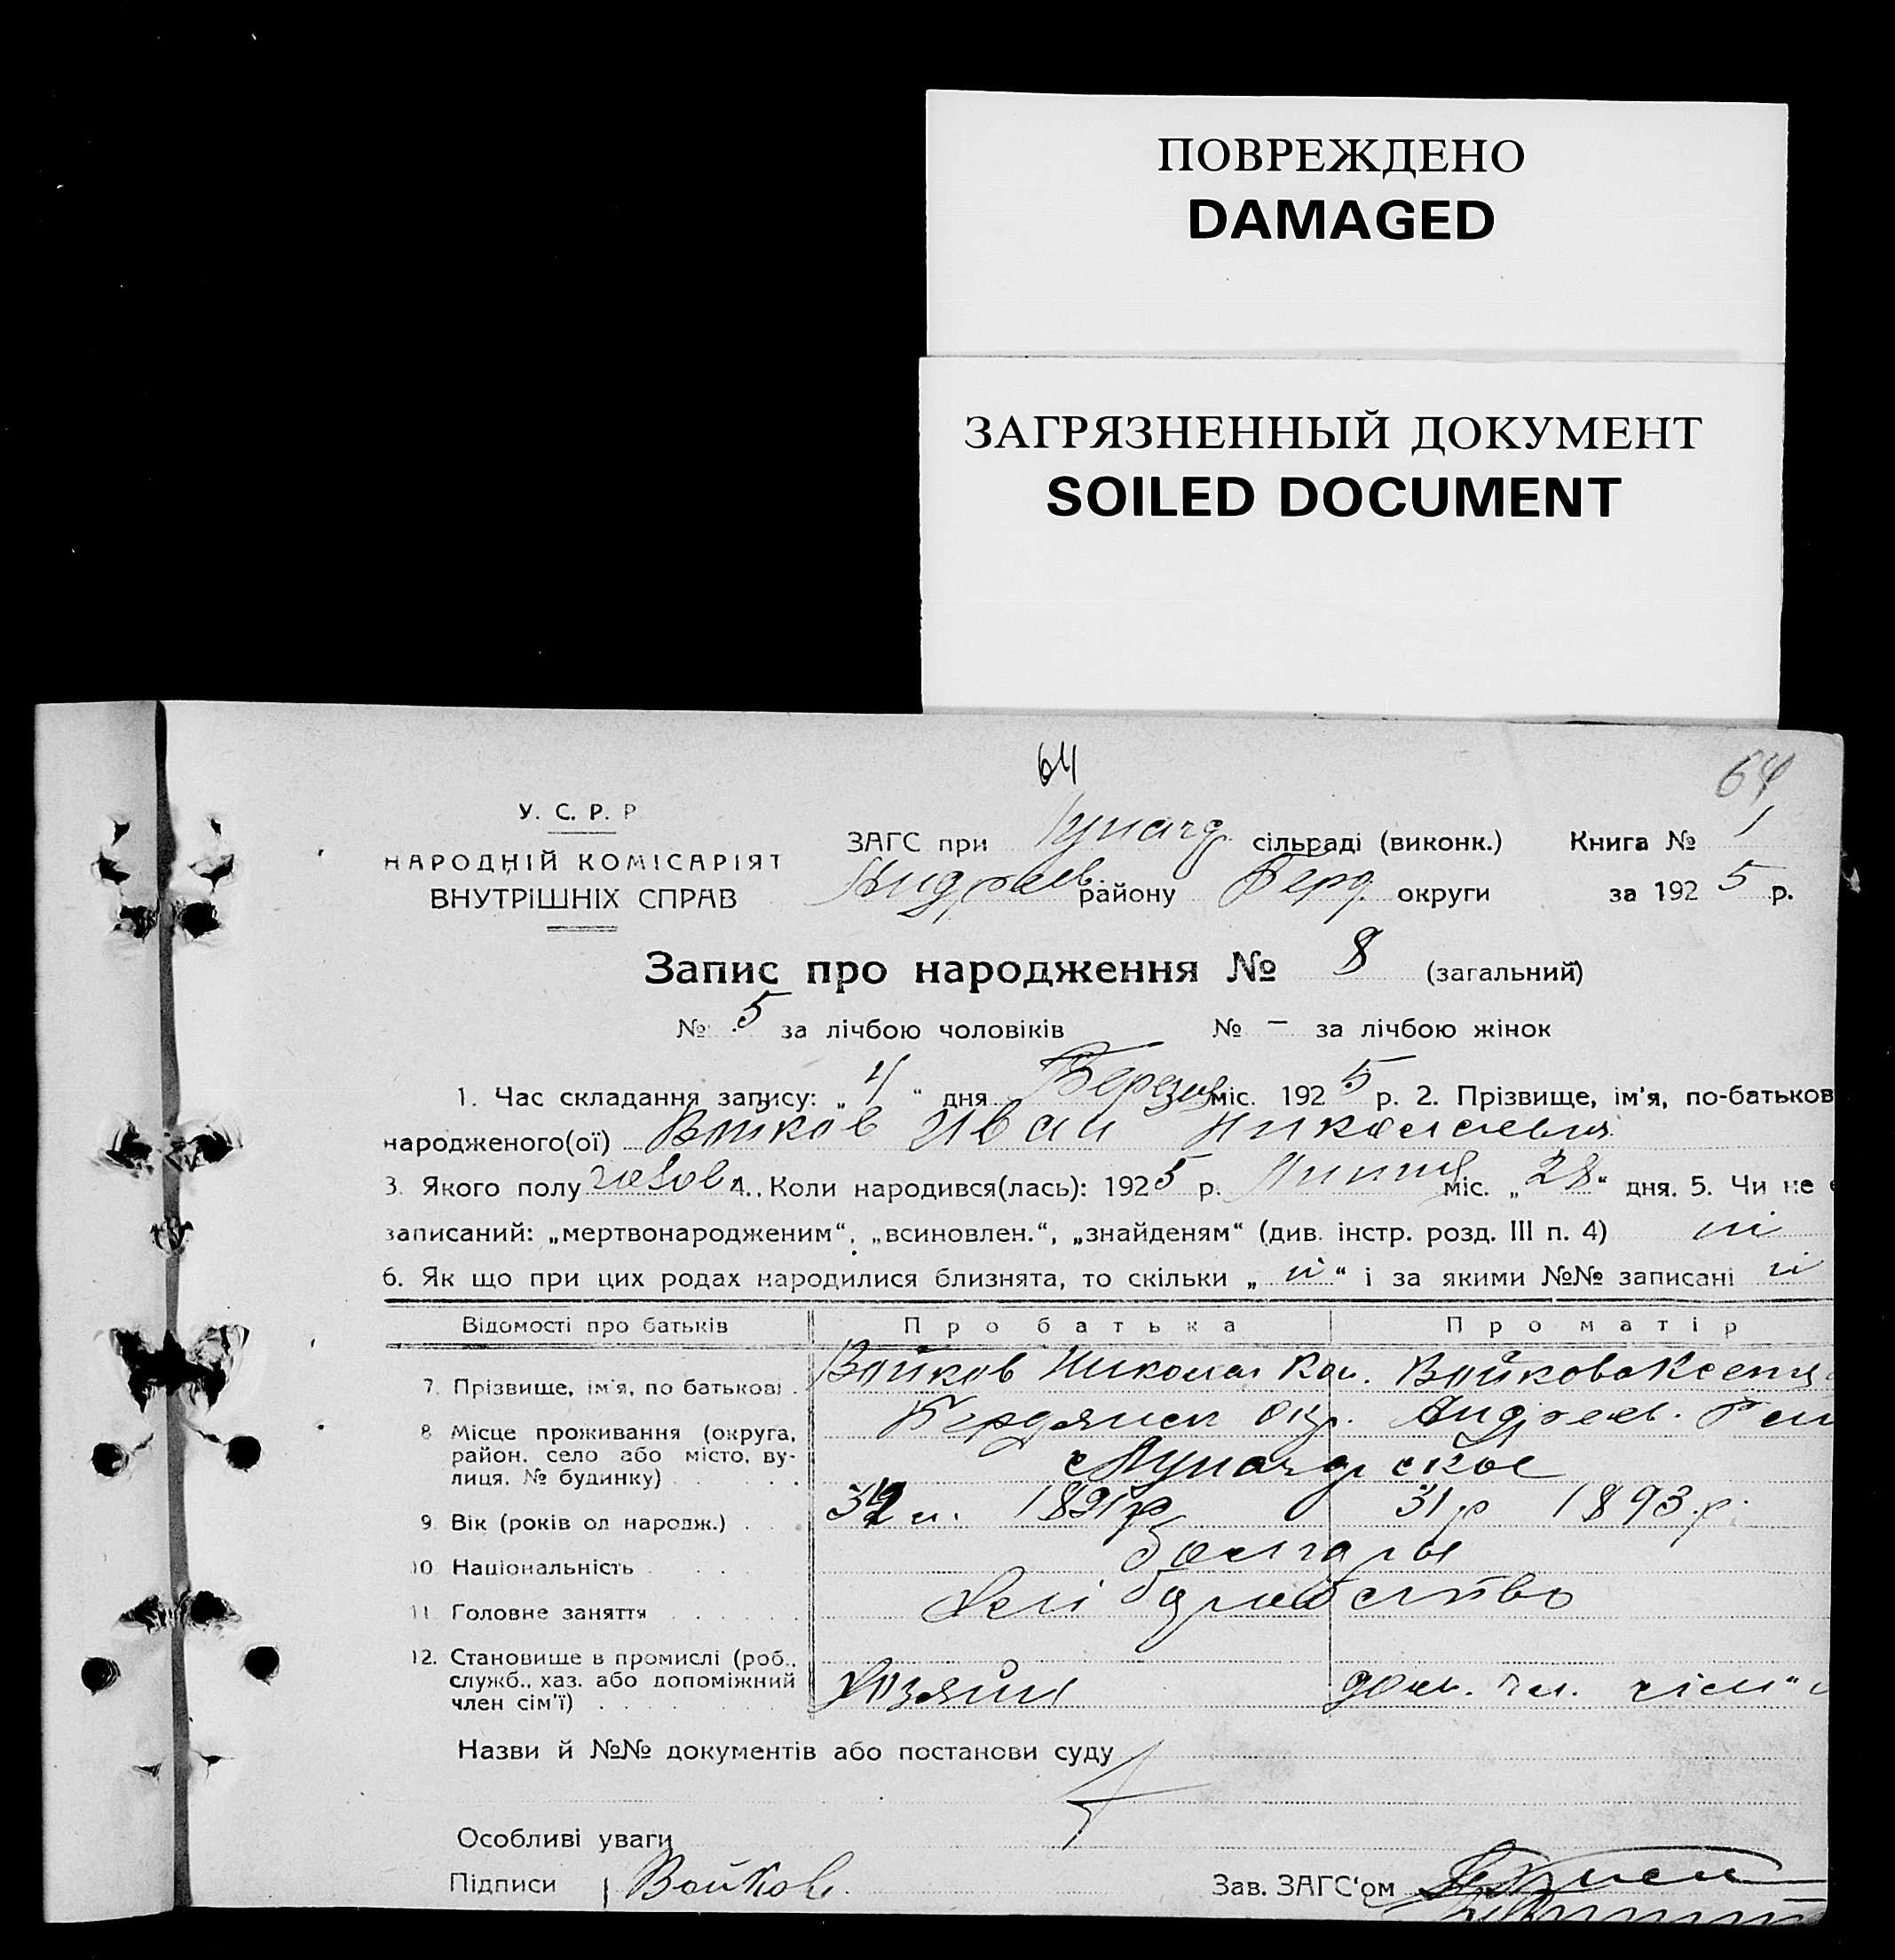 ПОВРЕЖДЕНО
DAMAGED
ЗАГРЯЗНЕННЫЙ ДОКУМЕНТ
SOILED DOCUMENT
64
64
У. С. Р. Р
НАРОДНІЙ КОМІСАРІЯТ
ВНУТРІШНІХ СПРАВ
ЗАГС при сільраді (виконк.) Книга № 1
Андреев. району Берд. округи за 1925 р.
Запис про народження № 8 (загальний)
№ 5 за лічбою чоловіків № – за лічбою жінок
1. Час складання запису: „4“ дня Березня міс. 1925 р. 2. Прізвище, ім'я, по-батьков
народженого(ої) Войков Иван Николаевич
3. Якого полу чолов. 4. Коли народився(лась): 1925 р. міс. „28“ дня. 5. Чи не є
записаний: „мертвонародженим“, „всиновлен.“, „знайденям“ (див. інстр. розд. III п. 4) ні
6. Як що при цих родах народилися близнята, то скільки „ні“ і за якими №№ записані ні
Відомості про батьків Про батька Про матір
7. Прізвище, ім'я, по батькові . Войков Николай Войкова Ксения
8. Місце проживання (округа, район, село або місто, вулиця, № будинку) Бердянск окр. Андреев. Рай
с Луначарское
9. Вік (років од народж.) 1891 р 31 р 1893 р.
10. Національність болгары
11. Головне заняття Хліборобство
12. Становище в промислі (роб., служб., хаз. або допоміжний член сім'ї) Хозяин доп. чл. сім'ї
Назви й №№ документів або постанови суду
Особливі уваги
Підписи Войков. Зав. ЗАГС'ом